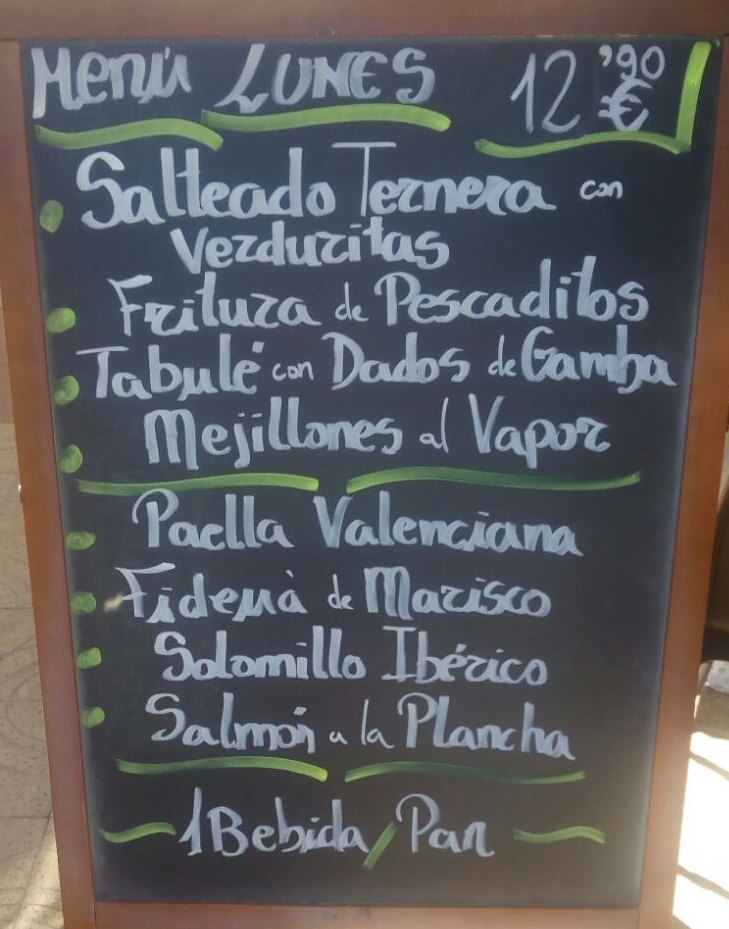 Menú LUNES 12'90 €
Salteado Ternera con
Verduritas
Fritura de Pescaditos
Tabulé con Dados de Gamba
Mejillones al Vapor
Paella Valenciana
Fideuà de Marisco
Solomillo Ibérico
Salmón a la Plancha
1 Bebida / Pan